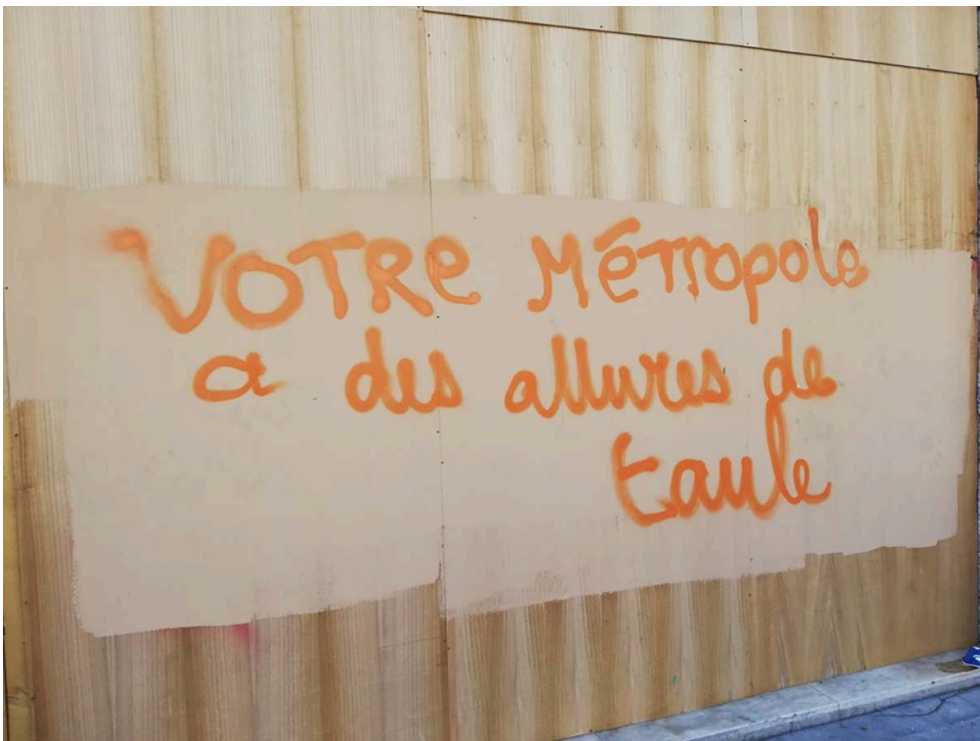 VOTRe MéTropole
a des allures de
taule